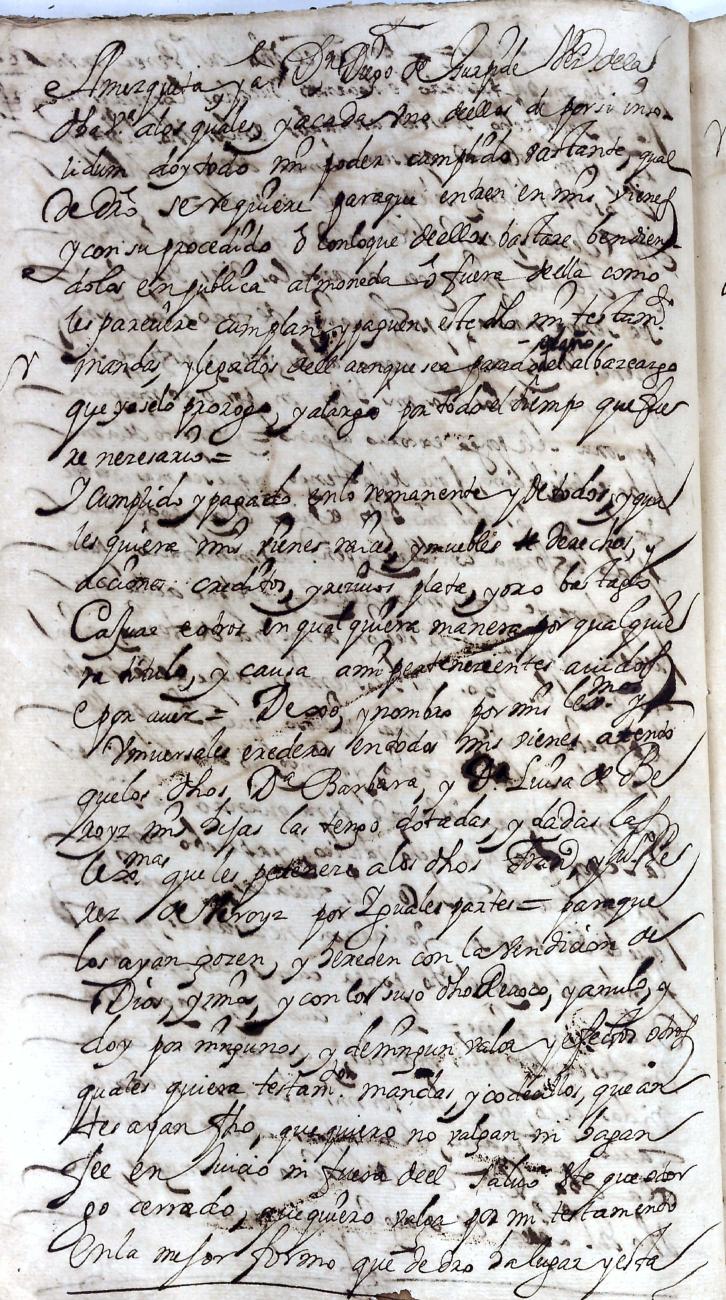 Amezqueta y a Dn Diego de della
dha alos quales, yacada Uno dellos de porsi inso
lidum doy todo mi poder cumplido vastante, qual
de dro se requiere paraque entren en mis vienes
y con su procedido o conloque deellos bastare bendien
dolos en publica almoneda o fuera della como
les pareciere cumplan, y paguen este dho mi testamto
mandas, y legados dell aunque sea pasado el año albazeasgo
que yo selo prorogo, y alargo por todo el tiempo que fue
re nezesario =
Y Cumplido y pagado enlo remanente y de todos, y qua
les quiera mis vienes raizes, y muebles derechos, y
acciones creditos, plata, y oro
Casuar e otros en qual quiera manera por qualquie
ra titulo, y causa a mi pertenezientes auidos
e por auer = Dexo, y nombro por mis lexmos y
Vniversales erederos entodos mis vienes atento
quelos dhos Da Barbara, y Da Luisa de Be
rroyz mis hijas las tengo dotadas, y dadas las
lexmas que les pertenece alos dhos Franco, y
rez de Verroyz por Yguales partes = paraque
los ayan gozen, y hereden con la vendicion de
Dios, y mia, y con los suso dho Reuoco, y anulo, y
doy por ningunos, y de ningun valor y efecto otros
quales quiera testamtos mandas, y codecilos, que an
tes ayan fho, que quiero no valgan ni hagan
fee en Juicio ni fuera deel salvo este que otor
go cerrado, que quiero valga por mi testamento
Enla mejor forma que de dro ha lugar y esta